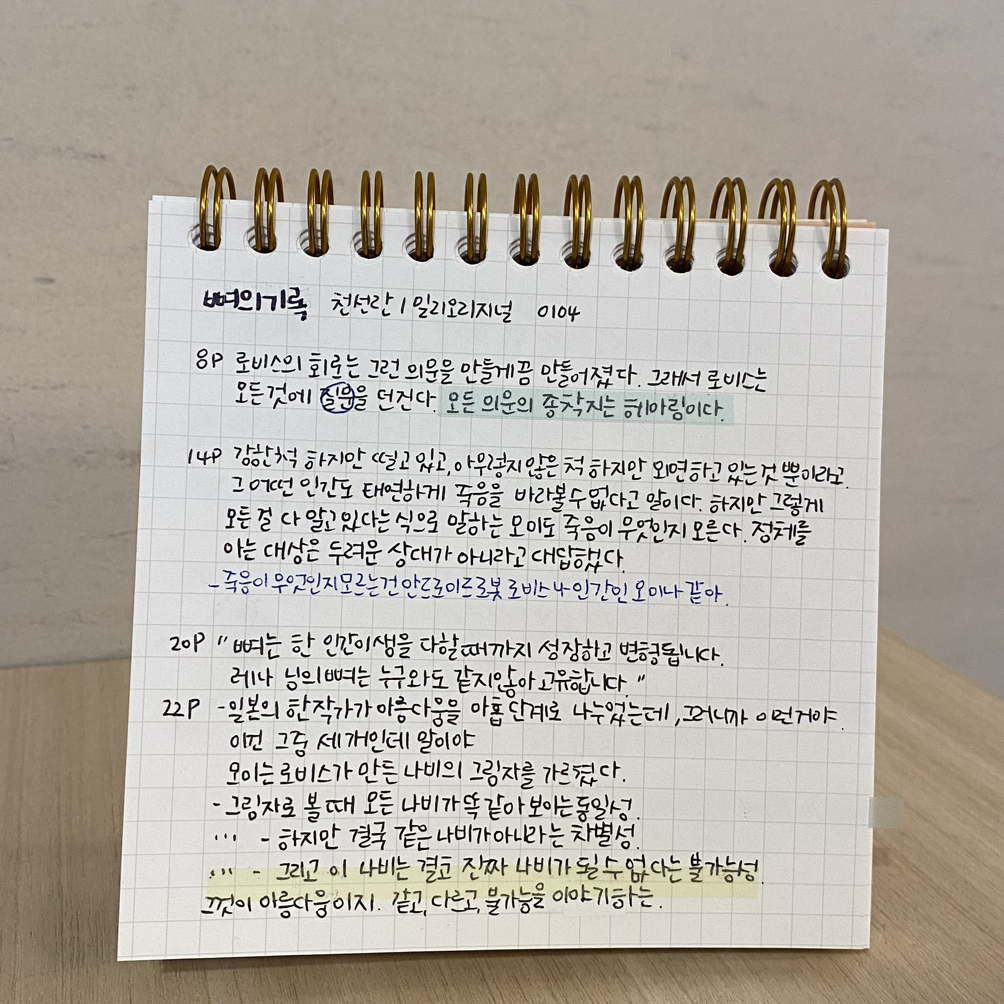 뼈의기록 천선란 / 밀리오리지널 0104
8P 로비스의 회로는 그런 의문을 만들게끔 만들어졌다. 그래서 로비스는
모든것에 질문을 던진다. 모든 의문의 종착지는 헤아림이다.
14P 강한척 하지만 떨고 있고, 아무렇지 않은 척 하지만 외면하고 있는것 뿐이라고.
그 어떤 인간도 태연하게 죽음을 바라볼 수 없다고 말이다. 하지만 그렇게
모든 걸 다 알고있다는 식으로 말하는 모미도 죽음이 무엇인지 모른다. 정체를
아는 대상은 두려운 상대가 아니라고 대답했다.
- 죽음이 무엇인지 모르는건 안드로이드 로봇 로비스나 인간인 모미나 같아.
20P " 뼈는 한 인간이 생을 다할 때까지 성장하고 변형됩니다.
레나 님의 뼈는 누구와도 같지 않아 고유합니다. "
22P - 일본의 한 작가가 아름다움을 아홉 단계로 나누었는데, 그러니까 이런거야.
이건 그중 세 개인데 말이야
모미는 로비스가 만든 나비의 그림자를 가르켰다.
- 그림자로 볼 때 모든 나비가 똑같아 보이는 동일성.
... - 하지만 결국 같은 나비가 아니라는 차별성.
... - 그리고 이 나비는 결코 진짜 나비가 될 수 없다는 불가능성.
그것이 아름다움이지. 같고, 다르고, 불가능을 이야기하는.